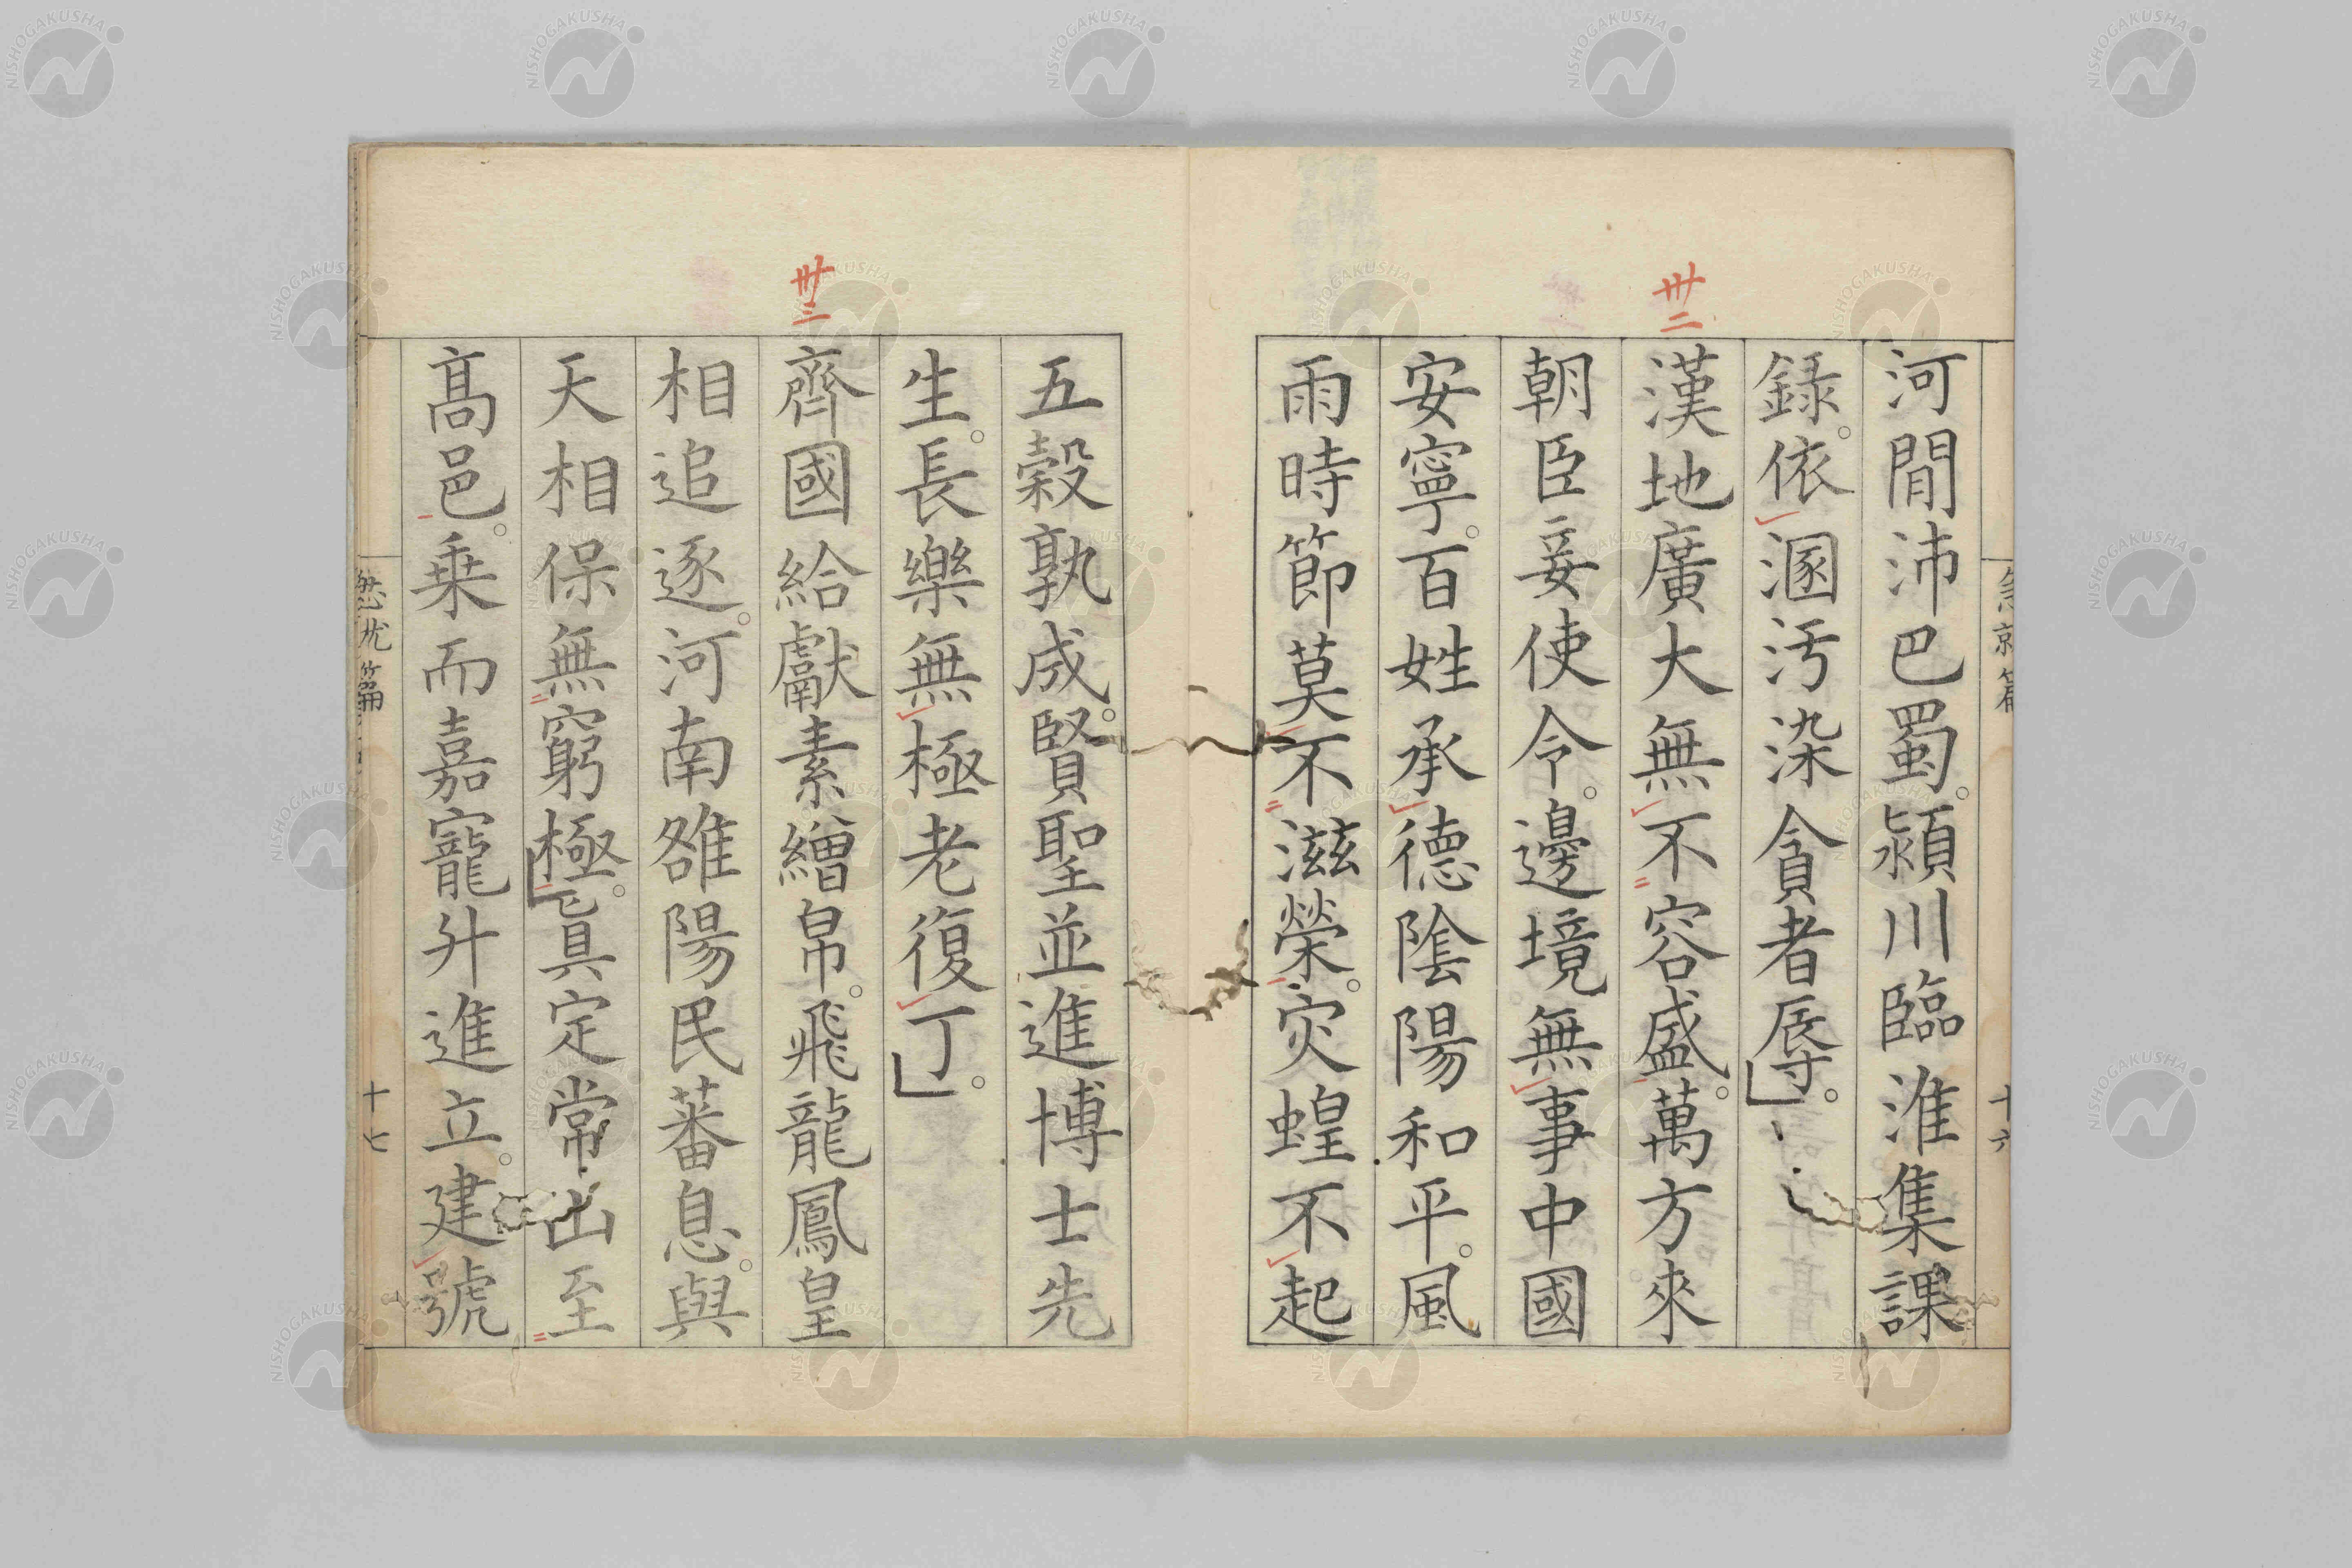 河閒沛巴蜀。潁川臨淮集課
錄。依溷汚染貪者辱。
卅二
漢地廣大無不容盛。萬方來
朝臣妾使令。邊境無事中國
安寧。百姓承德陰陽和平。風
雨時節莫不滋榮。灾蝗不起
五穀孰成。賢聖並進博士先
生。長樂無極老復丁。
卅三
齊國給獻素繒帛。飛龍鳳皇
相追逐。河南雒陽民蕃息。與
天相保無窮極。眞定常山至
高邑。乗而嘉寵升進立。建號
急就篇
十六
急就篇
十七
NISHOGAKUSHA